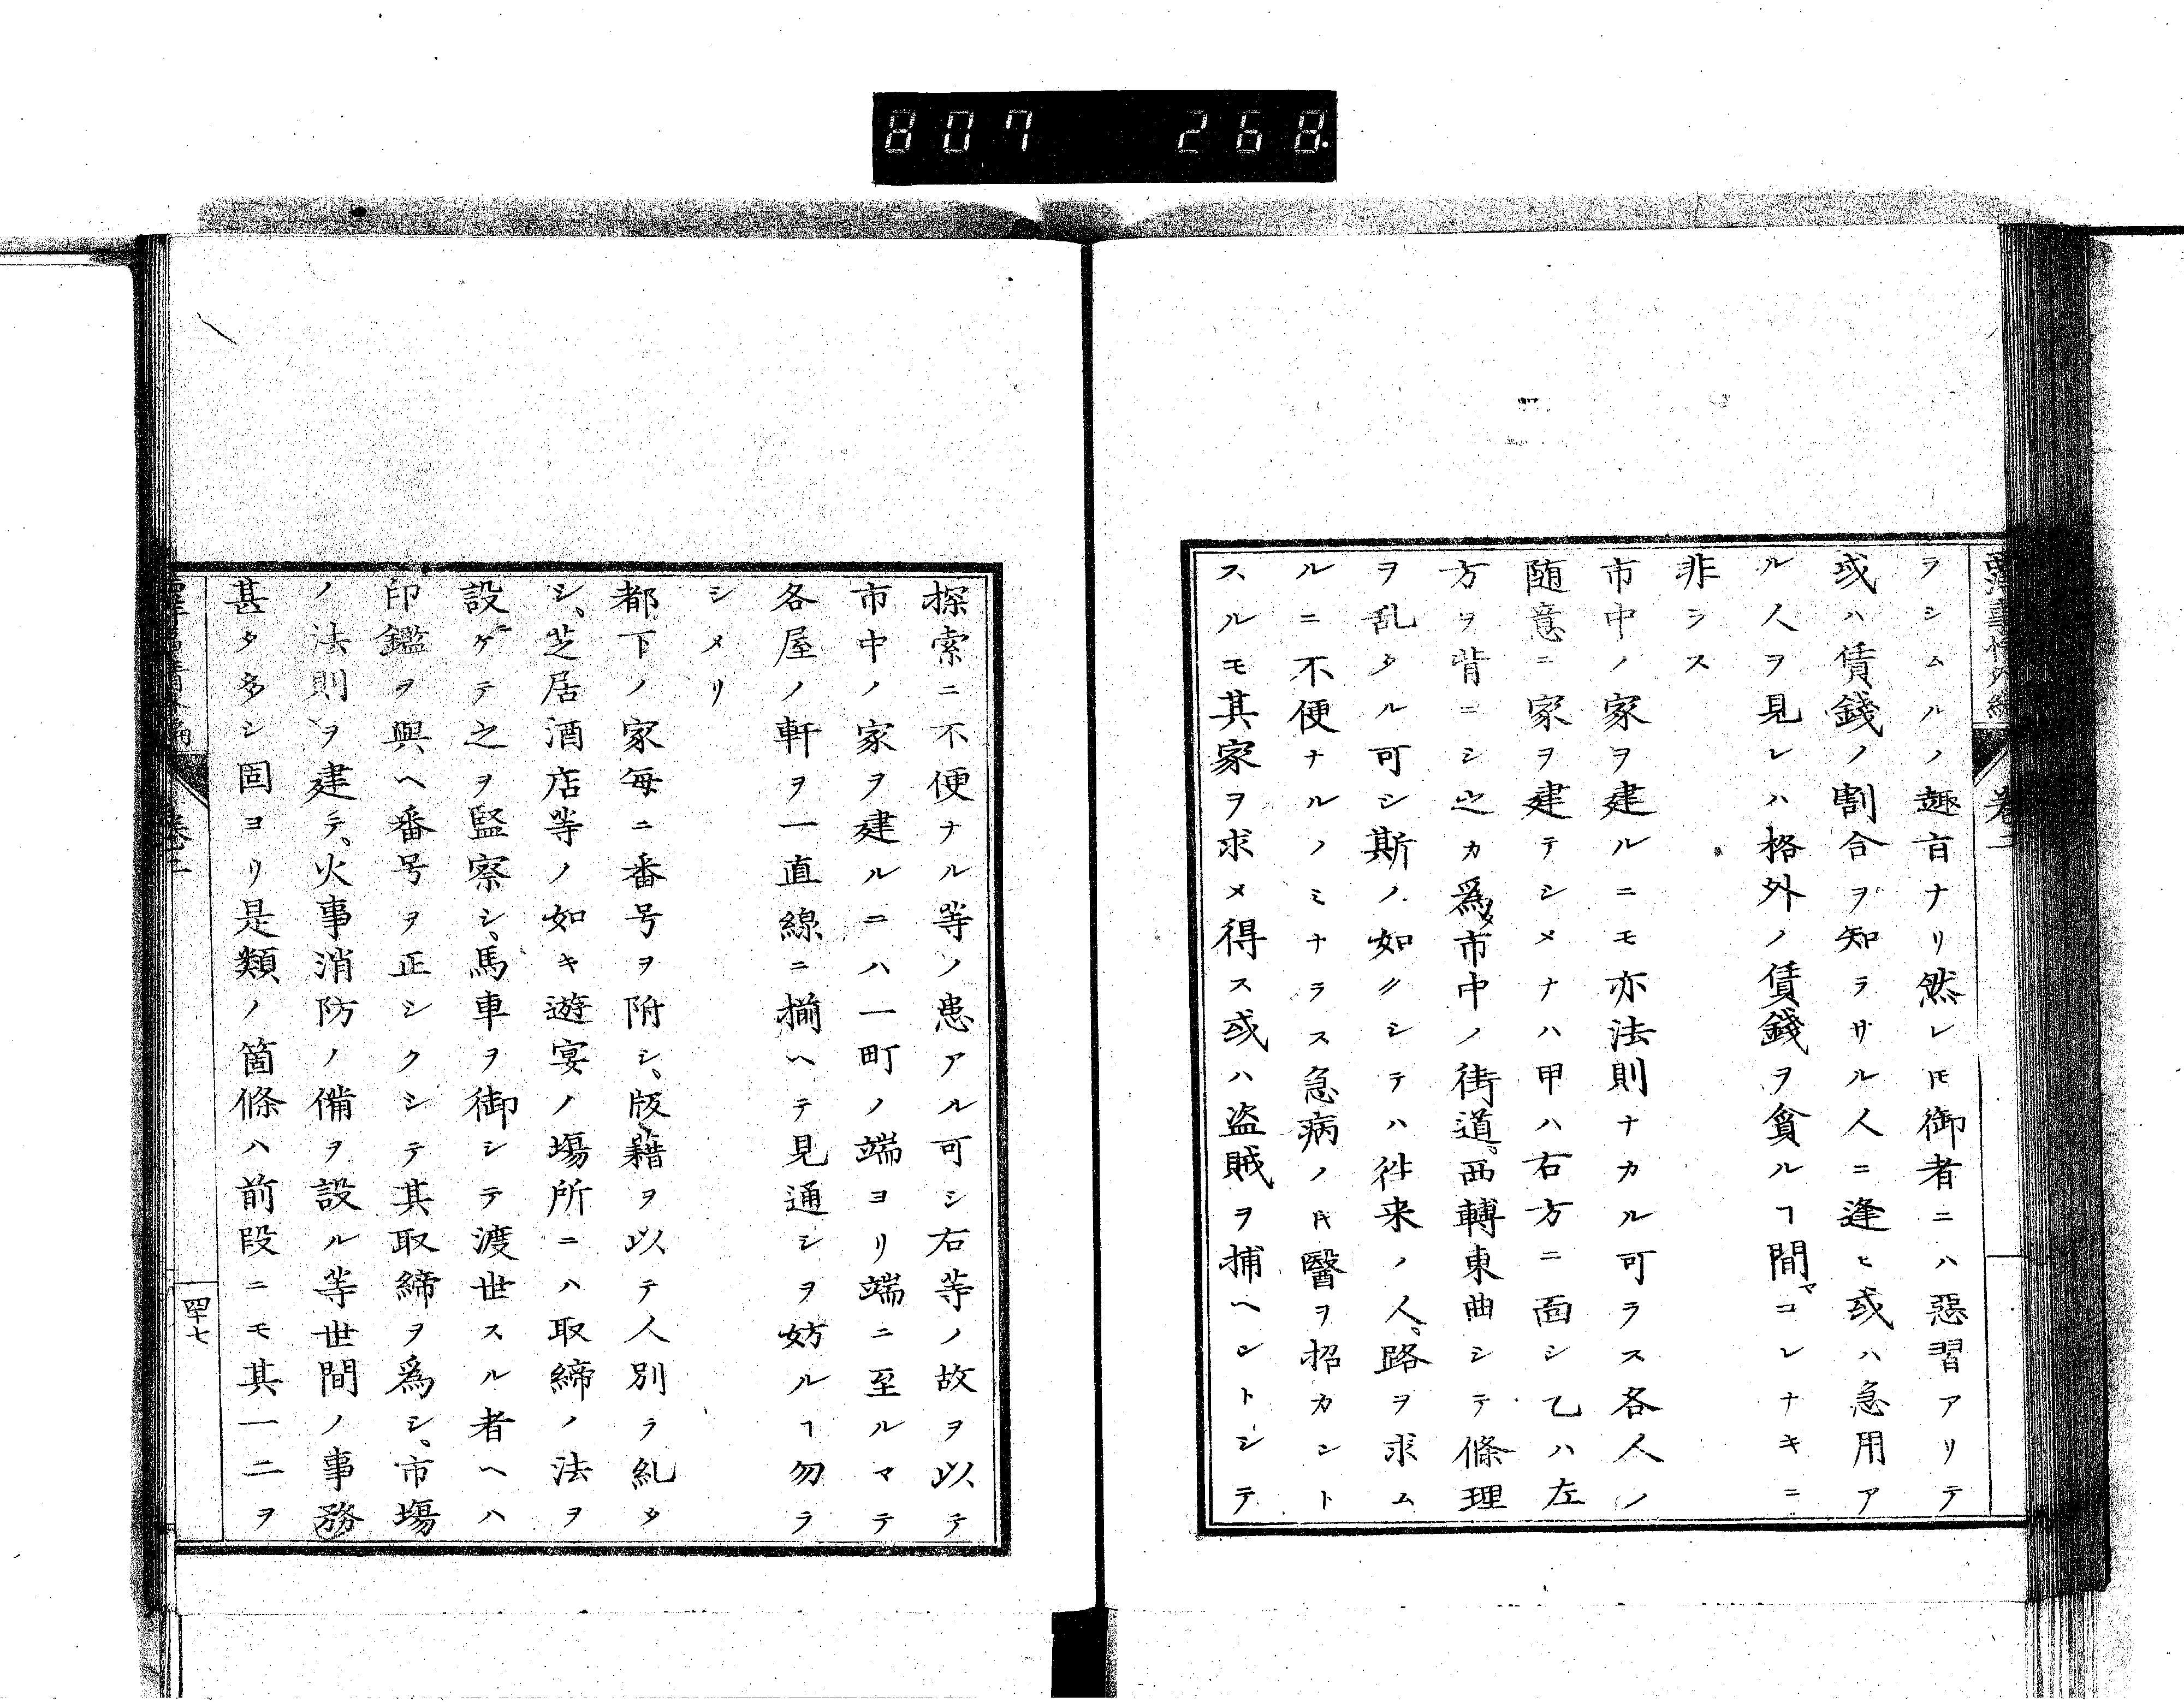 807 268.
西洋事情外編 卷二
ラシムルノ趣旨ナリ然レ𪜈御者ニハ惡習アリテ
或ハ賃錢ノ割合ヲ知ラサル人ニ逢ヒ或ハ急用ア
ル人ヲ見レハ格外ノ賃錢ヲ貪ルヿ間マコレナキニ
非ラス
市中ノ家ヲ建ルニモ亦法則ナカル可ラス各人ノ
随意ニ家ヲ建テシメナハ甲ハ右方ニ面シ乙ハ左
方ヲ背ニシ之カ爲メ市中ノ街道、西轉東曲シテ條理
ヲ乱タル可シ斯ノ如クシテハ徃来ノ人、路ヲ求ム
ルニ不便ナルノミナラス急病ノ𪜈醫ヲ招カント
スルモ其家ヲ求メ得ス或ハ盗賊ヲ捕ヘントシテ
探索ニ不便ナル等ノ患アル可シ右等ノ故ヲ以テ
市中ノ家ヲ建ルニハ一町ノ端ヨリ端ニ至ルマテ
各屋ノ軒ヲ一直線ニ揃ヘテ見通シヲ妨ルヿ勿ラ
シメリ
都下ノ家毎ニ番号ヲ附シ、版籍ヲ以テ人別ヲ糺タ
シ、芝居酒店等ノ如キ遊宴ノ塲所ニハ取締ノ法ヲ
設ケテ之ヲ監察シ、馬車ヲ御シテ渡世スル者ヘハ
印鑑ヲ與ヘ番号ヲ正シクシテ其取締ヲ爲シ、市塲
ノ法則ヲ建テ、火事消防ノ備ヲ設ル等世間ノ事務
甚タ多シ固ヨリ是類ノ箇條ハ前段ニモ其一二ヲ
卷二
四十七